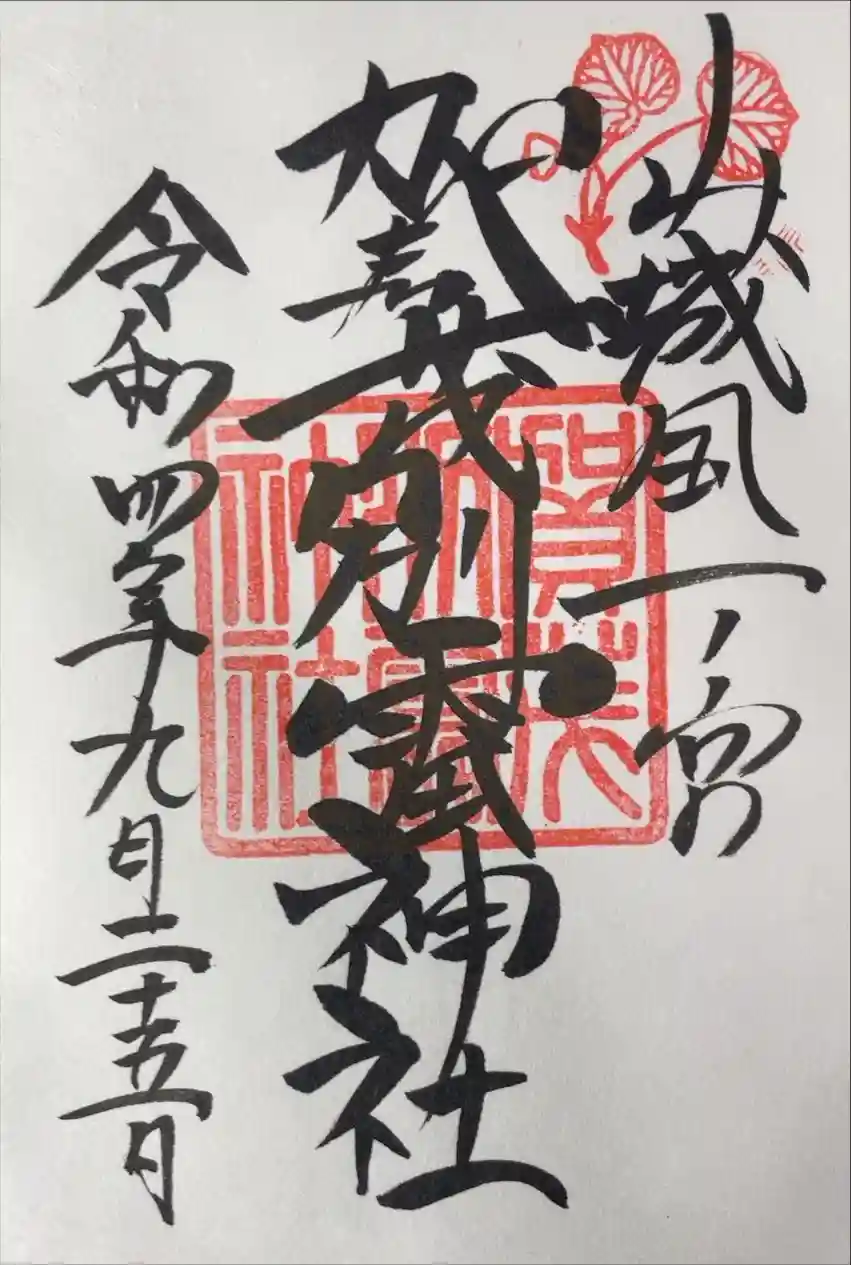 山城国一ノ宮
賀茂別雷神社
令和四年九月二十五日
賀茂
別雷
神社